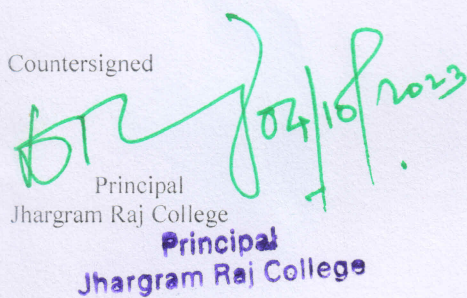 Countersigned
04/10/2023
Principal
Jhargram Raj College
Principal
Jhargram Raj College